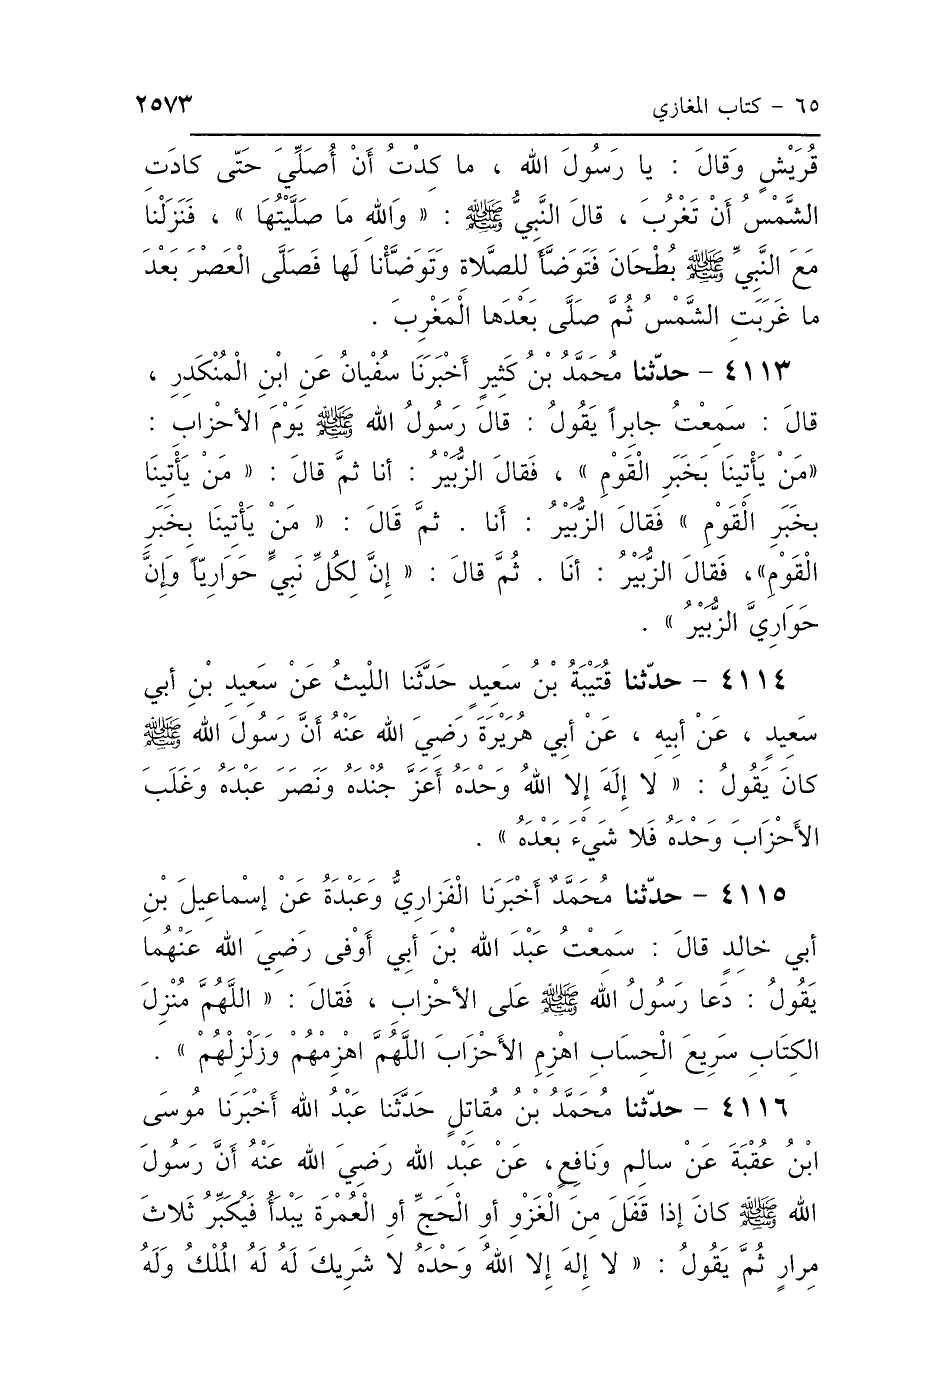 ٦٥ - كتاب المغازي ٢٥٧٣
قُرَيْشٍ وَقالَ : يا رَسُولَ الله ، ما كِدْتُ أَنْ أُصَلِّيَ حَتّى كادَتِ
الشَّمْسُ أَنْ تَغْرُبَ ، قالَ النَّبِيُّ ﷺ : « وَاللهِ مَا صَلَّيْتُهَا » ، فَنَزَلْنا
مَعَ النَّبِيِّ ﷺ بُطْحَانَ فَتَوَضَّأَ لِلصَّلاةِ وَتَوَضَّأْنا لَها فَصَلَّى الْعَصْرَ بَعْدَ
ما غَرَبَتِ الشَّمْسُ ثُمَّ صَلَّى بَعْدَها الْمَغْرِبَ .
٤١١٣ - حدّثنا مُحَمَّدُ بْنُ كَثِيرٍ أَخْبَرَنَا سُفْيانُ عَنِ ابْنِ الْمُنْكَدِرِ ،
قالَ : سَمِعْتُ جابِراً يَقُولُ : قالَ رَسُولُ الله ﷺ يَوْمَ الأحْزابِ :
«مَنْ يَأْتِينَا بَخَبَرِ الْقَوْمِ » ، فَقالَ الزُّبَيْرُ : أنا ثمَّ قالَ : « مَنْ يَأْتِينَا
بِخَبَرِ الْقَوْمِ » فَقالَ الزُّبَيْرُ : أَنا . ثمَّ قَالَ : « مَنْ يَأْتِينَا بِخَبَرِ
الْقَوْمِ»، فَقالَ الزُّبَيْرُ : أنَا . ثُمَّ قالَ : « إنَّ لِكُلِّ نَبِيٍّ حَوَارِيّاً وإنَّ
حَوَارِيَّ الزُّبَيْرُ » .
٤١١٤ - حدّثنا قُتَيْبَةُ بْنُ سَعِيدٍ حَدَّثَنا اللَّيثُ عَنْ سَعِيدِ بْنِ أبي
سَعِيدٍ ، عَنْ أبيهِ ، عَنْ أبي هُرَيْرَةَ رَضِيَ الله عَنْهُ أنَّ رَسُولَ الله ﷺ
كانَ يَقُولُ : « لا إلَهَ إلا اللهُ وَحْدَهُ أعَزَّ جُنْدَهُ وَنَصَرَ عَبْدَهُ وَغَلَبَ
الأَحْزَابَ وَحْدَهُ فَلا شَيْءَ بَعْدَهُ » .
٤١١٥ - حدّثنا مُحَمَّدٌ أَخْبَرَنَا الْفَزارِيُّ وَعَبْدَةُ عَنْ إسْماعِيلَ بْنِ
أبي خالِدٍ قالَ : سَمِعْتُ عَبْدَ الله بْنَ أبي أَوْفى رَضِيَ الله عَنْهُما
يَقُولُ : دَعا رَسُولُ الله ﷺ عَلى الأحْزابِ ، فَقالَ : « اللَّهُمَّ مُنْزِلَ
الكِتَابِ سَرِيعَ الْحِسَابِ اهْزِمِ الأَحْزَابَ اللَّهُمَّ اهْزِمْهُمْ وَزَلْزِلْهُمْ » .
٤١١٦ - حدّثنا مُحَمَّدُ بْنُ مُقاتِلٍ حَدَّثَنا عَبْدُ الله أخْبَرَنا مُوسَى
ابْنُ عُقْبَةَ عَنْ سالِمٍ وَنافِعٍ، عَنْ عَبْدِ الله رَضِيَ الله عَنْهُ أنَّ رَسُولَ
الله ﷺ كانَ إذا قَفَلَ مِنَ الْغَزْوِ أو الْحَجِّ أو الْعُمْرَةِ يَبْدَأُ فَيُكَبِّرُ ثَلاثَ
مِرارٍ ثُمَّ يَقُولُ : « لا إلهَ إلا اللهُ وَحْدَهُ لا شَرِيكَ لَهُ لَهُ المُلْكُ وَلَهُ